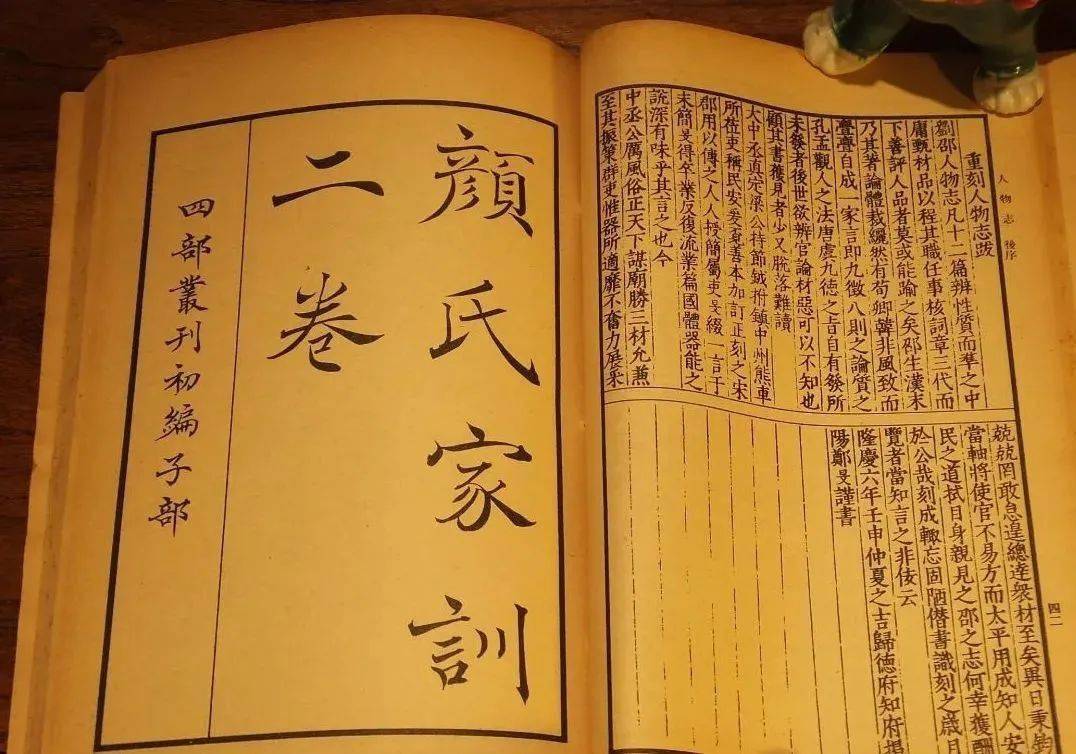 人物志 後序
四二
重刻人物志跋
劉邵人物志凡十二篇辨性質而準之中
庸甄材品以程其職任事核詞章三代而
下善評人品者莫或能踰之矣邵生漢末
乃其著論體裁纚然有荀卿韓非風致而
亹亹自成一家言即九徵八則之論質之
孔孟觀人之法唐虞九德之旨自有發所
未發者後世欲辨官論材惡可以不知也
顧其書獲見者少又脫落難讀
大中丞真定梁公持節鉞拊鎮中州熊車
所莅吏稱民安爰覔善本加訂正刻之宋
郡用以傳之人人授簡屬吏旻綴一言于
末簡旻得卒業反後流業篇國體器能之
說深有味乎其言之也今
中丞公厲風俗正天下謀廟勝三材允兼
至其振策群吏惟器所適靡不奮力展采
兢兢罔敢怠遑總達衆材至矣異日秉鈞
當軸將使官不易方而太平用成知人安
民之道拭目身親見之邵之志何幸獲酬
於公哉刻成輒忘固陋僭書識刻之歲
覽者當知言之非佞云
隆慶六年壬申仲夏之吉歸德府知府揭
陽鄭旻謹書
顏氏家訓
二卷
四部叢刊初編子部